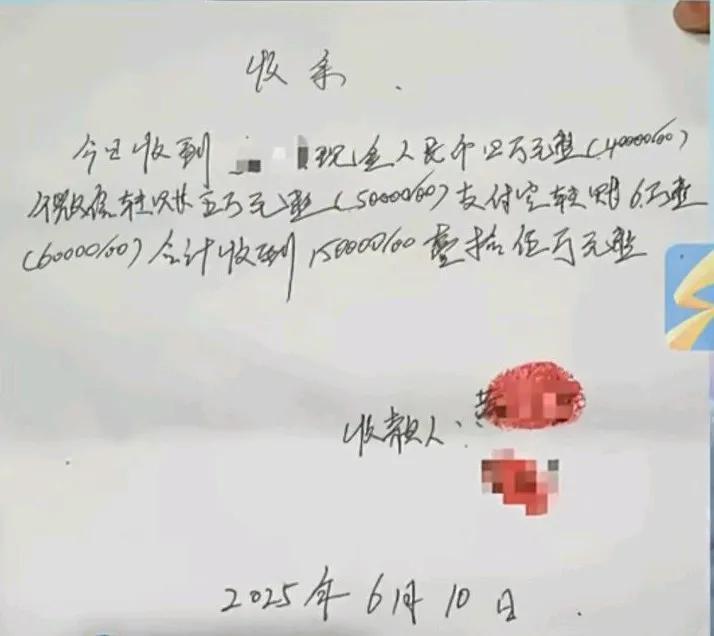 收条
今日收到 现金人民币四万元整(40000/00)
微信转账五万元整(50000/00)支付宝转账6万整
(60000/00)合计收到150000/00壹拾伍万元整
收款人:黄
2025年6月10日.